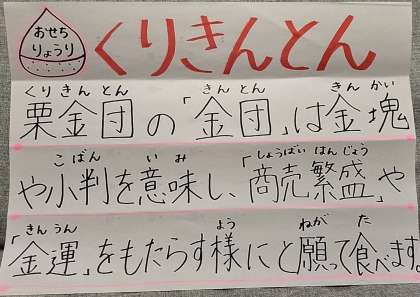 おせち
りょうり
くりきんとん
くり きん とん きん とん きん かい
栗金団の「金団」は金塊
こばん いみ しょうばい はんじょう
や小判を意味し、「商売繁盛」や
きん うん よう ねが た
「金運」をもたらす様にと願って食べます。